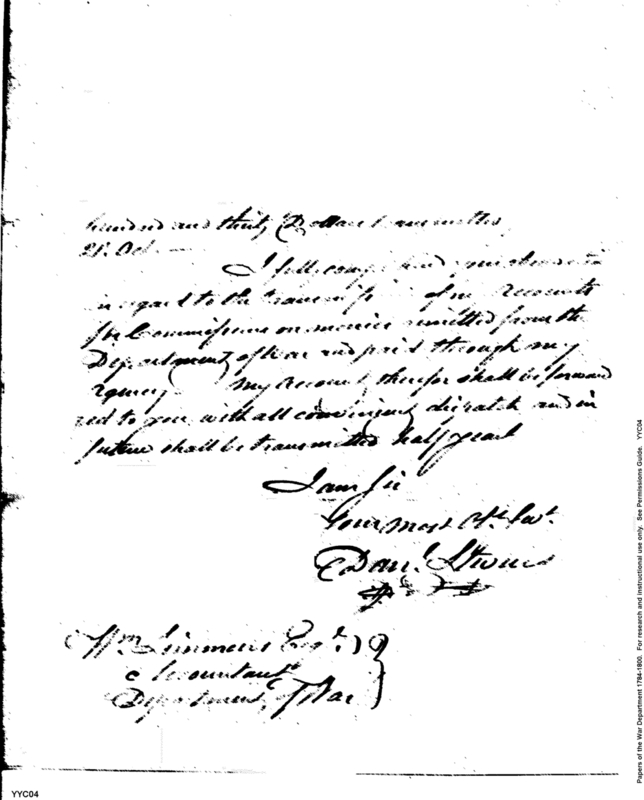 hundred and thirty Dollars transmitted
21st. Oct.
I fully comprehend your
in regard to the transmission of my Accounts
for Commissions on monies remitted from the
Department of War and paid through my
Agency My account therefor shall be forward
ed to you with all convenient dispatch and in
future shall be transmitted half yearl
I am Sir
Your most Obt. Servt.
Danl. Stevens
Wm. Simmons Esqr.
Accountant
Department of War
YYC04
Papers of the War Department 1784-1800. For research and instructional use only. See Permissions Guide. YYC04